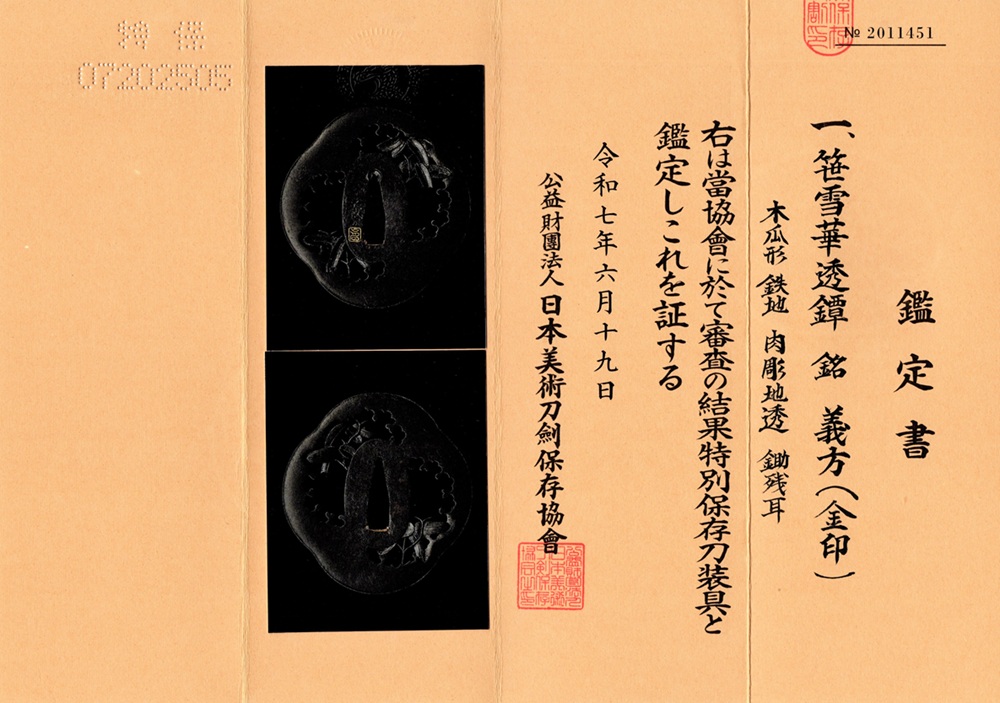 № 2011451
鑑定書
一、笹雪華透鐔 銘 義方(金印)
木瓜形 鉄地 肉彫地透 鋤残耳
右は當協會に於て審査の結果特別保存刀装具と
鑑定しこれを証する
令和七年六月十九日
公益財團法人日本美術刀劍保存協會
特保
07202505